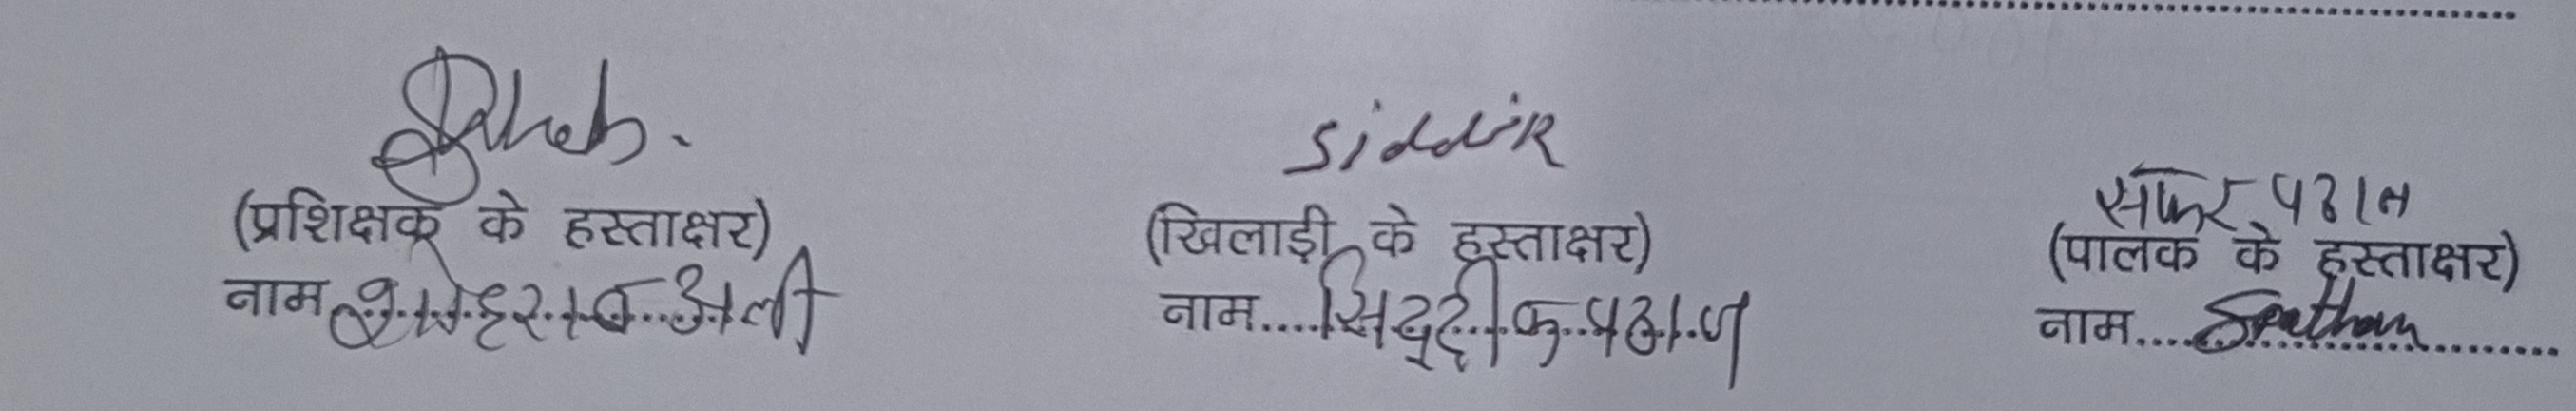 (प्रशिक्षक के हस्ताक्षर)
नाम अली
siddik
(खिलाड़ी के हस्ताक्षर)
नाम....सिद्दीक पठाण
पठान
(पालक के हस्ताक्षर)
नाम....Spathan